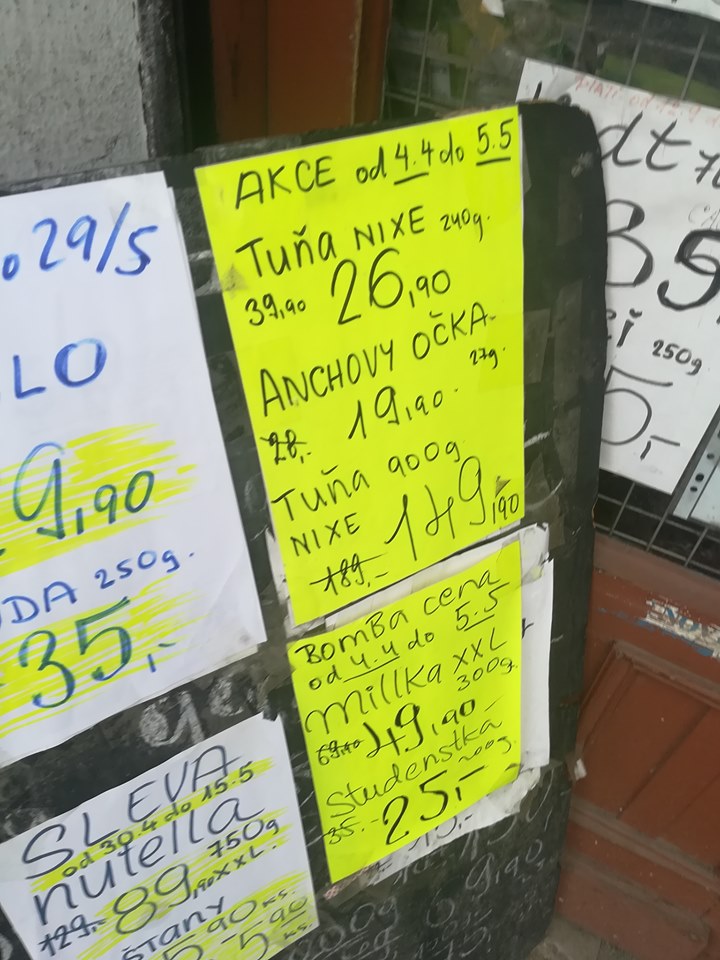 29/5
LO
9,90
DA 250g.
35,-
AKCE od 4.4 do 5.5
Tuňa NIXE 240g.
39,90 26,90
ANCHOVY OČKA.
27g.
28,- 19,90.
Tuňa 900g
NIXE 149,90
189,-
BOMBA cena
od 4.4 do 5.5
Millka XXL
300g
69,90 49,90.-
Studenstka
200g.
35.- 25,-
SLEVA
od 30.4 do 15.5
nutella
750g
129,- 89,90 XXL.
ŠTANY
5,90 ks.
5,90
ks.
250g
5,-